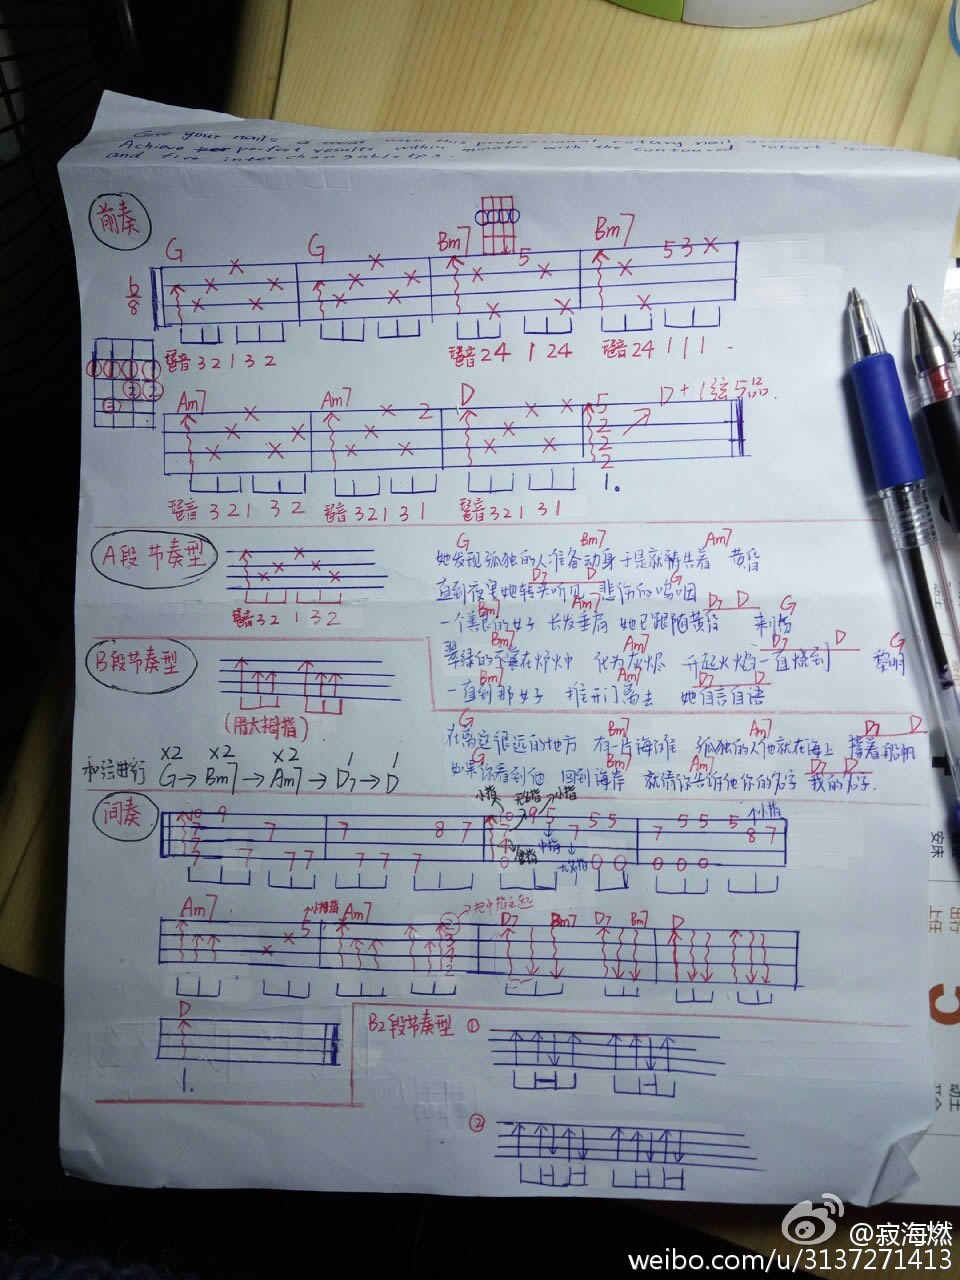 Give your nails a treat with this professional rotary nail
Achieve perfect results within minutes with the contoured
and five interchangable tips.
前奏
G G Bm7 Bm7
6/8
5 5 3
琶音 3 2 1 3 2 琶音 2 4 1 2 4 琶音 2 4 1 1 1
Am7 Am7 2 D 5 D+1弦5品12品
2
2
2
琶音 3 2 1 3 2 琶音 3 2 1 3 1 琶音 3 2 1 3 1 1.
A段 节奏型
琶音 3 2 1 3 2
G Bm7 Am7
她发现孤独的人准备动身 于是就祷告着 黄昏
D7 D G
直到夜里她转头听见 悲伤的呜咽
Bm7 Am7 D7 D G
一个善良的女子 长发垂肩 她已跟随黄昏 来临
Bm7 Am7 D7 D G
翠绿的 在炉火中 化为灰烬 升起火焰 一直烧到 黎明
Bm7 Am7 D7 D
一直到那女子 推开门离去 她自言自语
B段节奏型
(用大拇指)
G Bm7 Am7 D7 D
在离这很远的地方 有一片海滩 孤独的人他就在海上 撑着船帆
G Bm7 Am7 D7 D
如果你看到他 回到海岸 就请你告诉他你的名字 我的名字
和弦进行
X2 X2 X2 1 1
G→Bm7→Am7→D7→D
间奏
小指 无名指 小指 小指
10 9 7 7 8 7 10 9 5 7 5 5 7 5 5 5 8 7
7
7
7 7 7 7 7 7 7 0 0 0 0 0 0
食指 中指 无名指
Am7 5 小拇指 Am7 D7 Bm7 D7 Bm7 D
D
1.
B2段节奏型 ①
②
@寂海燃
weibo.com/u/3137271413